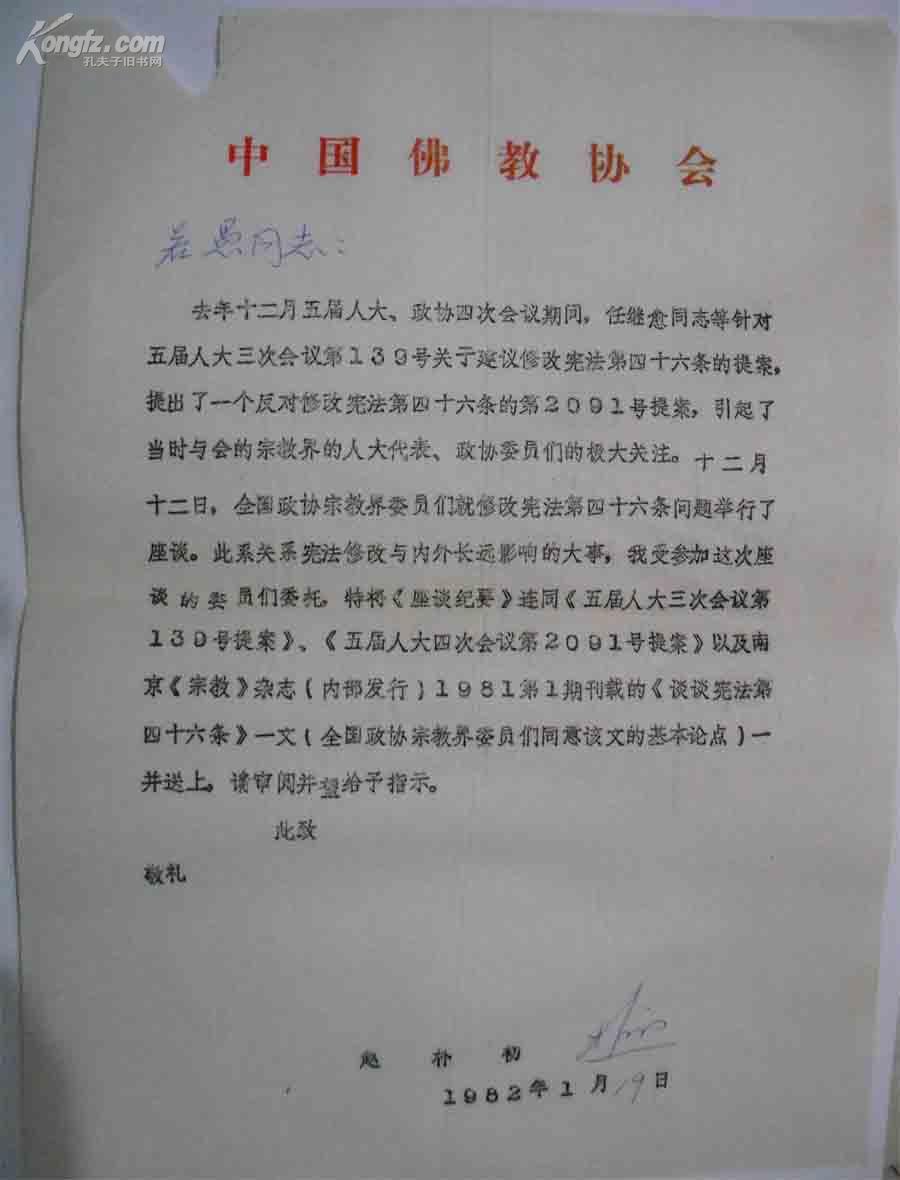 Kongfz.com
孔夫子旧书网
中国佛教协会
若愚同志：
去年十二月五届人大、政协四次会议期间，任继愈同志等针对
五届人大三次会议第139号关于建议修改宪法第四十六条的提案，
提出了一个反对修改宪法第四十六条的第2091号提案，引起了
当时与会的宗教界的人大代表、政协委员们的极大关注。十二月
十二日，全国政协宗教界委员们就修改宪法第四十六条问题举行了
座谈。此系关系宪法修改与内外长远影响的大事，我受参加这次座
谈的委员们委托，特将《座谈纪要》连同《五届人大三次会议第
139号提案》、《五届人大四次会议第2091号提案》以及南
京《宗教》杂志（内部发行）1981第1期刊载的《谈谈宪法第
四十六条》一文（全国政协宗教界委员们同意该文的基本论点）一
并送上。请审阅并望给予指示。
此致
敬礼
赵朴初
1982年1月19日